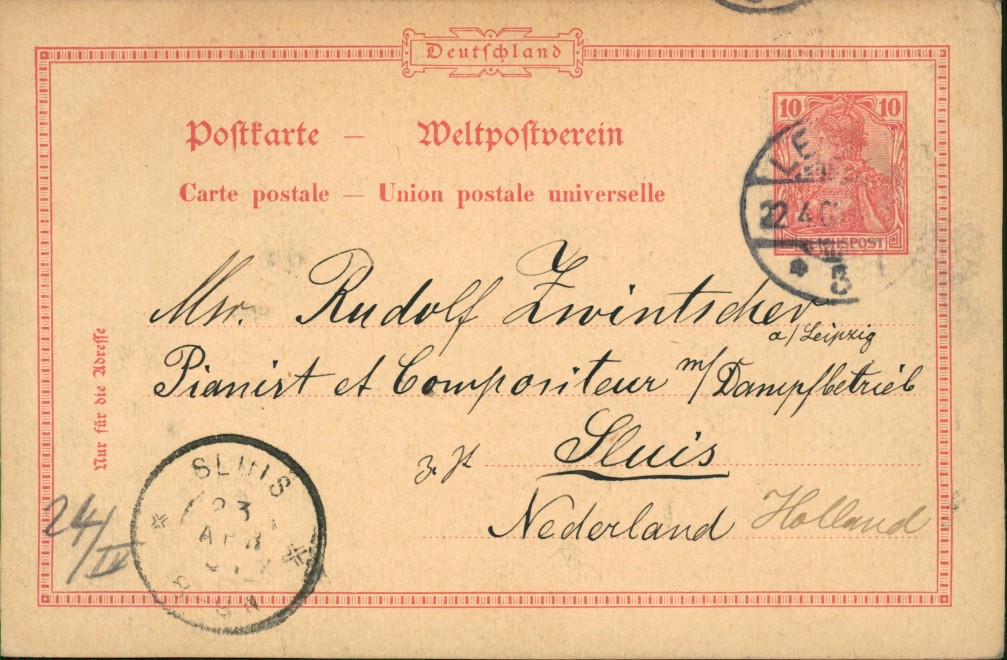 Deutschland
Postkarte — Weltpostverein
Carte postale — Union postale universelle
10 10
REICHSPOST
22.4.
* 8
Mr. Rudolf Zwintscher
a/Leipzig
Pianist et Compositeur m/Dampfbetrieb
z. Zt. Sluis
Nederland Holland
Nur für die Adresse
SLUIS
23
APR
24/IV